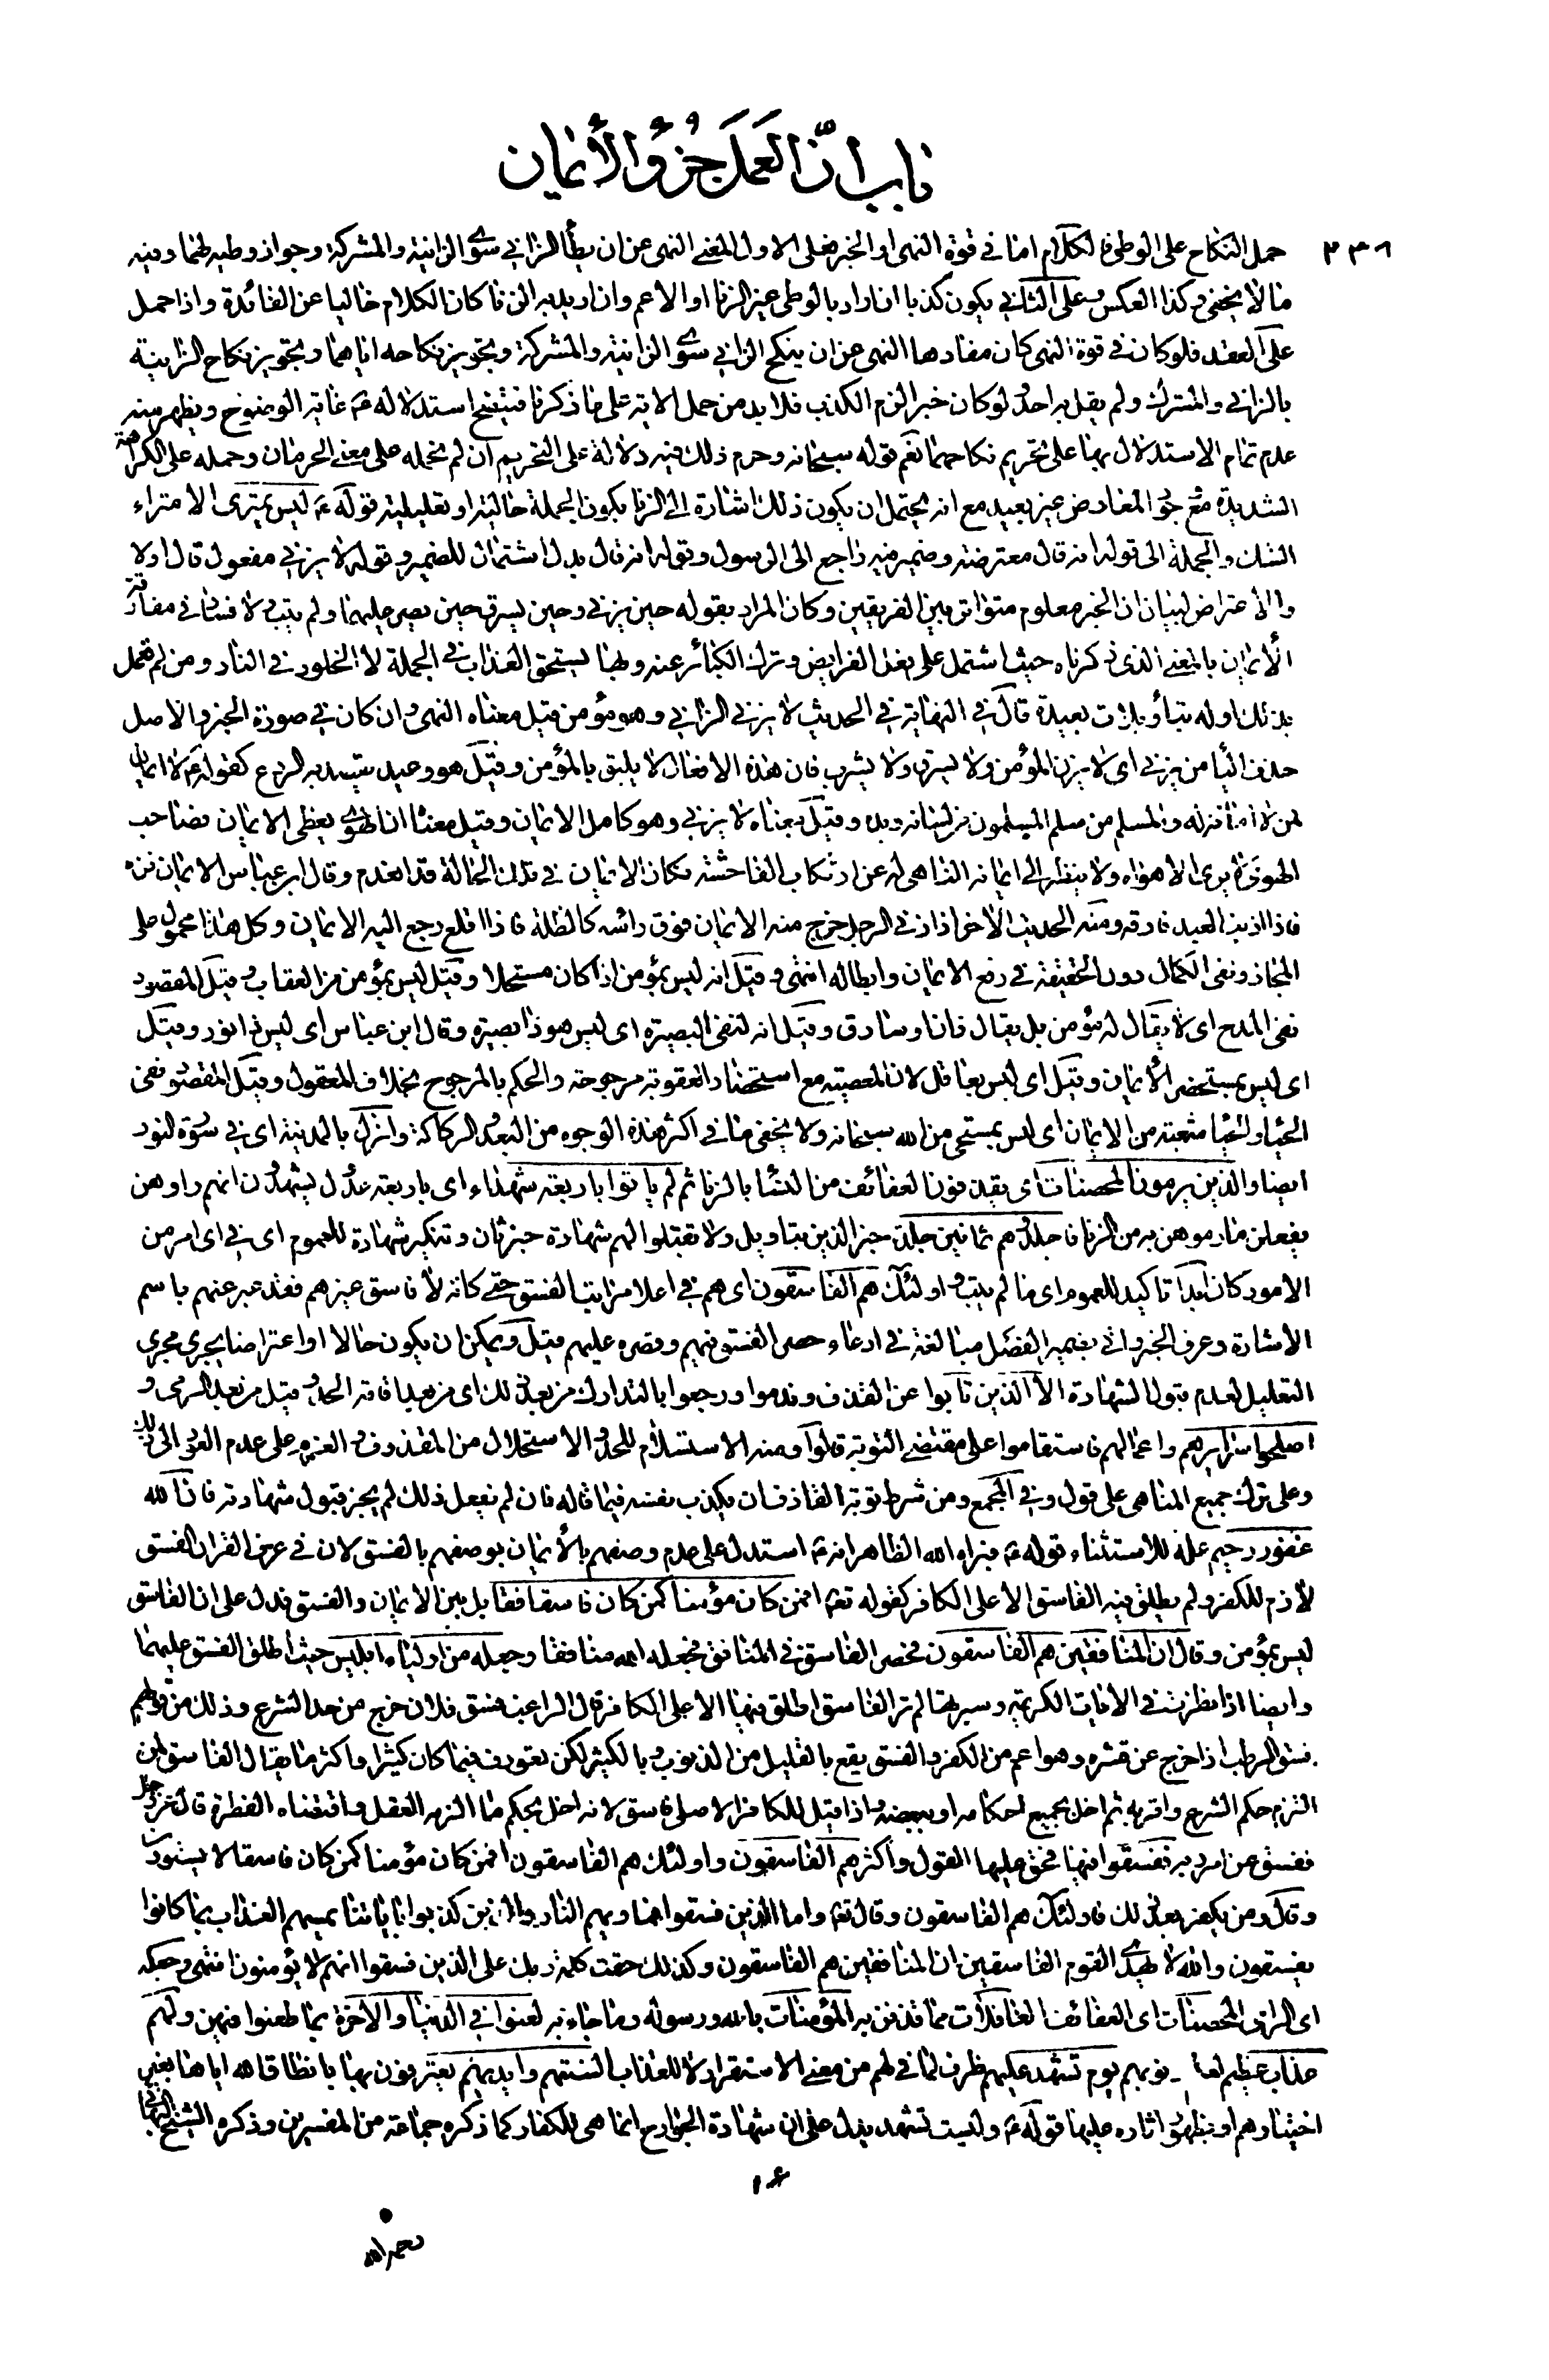 باب ان العمل جزؤ الأيمان
٢٣٨
حمل النكاح على الوطى فالكلام اما في قوة النهى او الخبر فعلى الاول المعنى النهى عن ان يطأ الزاني سوى الزانية والمشركة وجواز وطيه لهما وفيه
ما لا يخفى وكذا العكس وعلى الثاني يكون كذبا ان اراد بالوطى غير الزنا او الاعم وان اريد به الزنا كان الكلام خاليا عن الفائدة واذا حمل
على العقد فلو كان في قوة النهى كان مفادها النهى عن ان ينكح الزاني سوى الزانية والمشركة وتجويز نكاحه اياهما وتجويز نكاح الزانية
بالزاني والمشرك ولم يقل به احد ولو كان خبرا لزم الكذب فلا بد من حمل الاية على ما ذكرنا فيتضح استدلاله ع غاية الوضوح ويظهر منه
عدم تمام الاستدلال بها على تحريم نكاحهما نعم قوله سبحانه وحرم ذلك فيه دلالة على التحريم ان لم نحمله على معنى الحرمان وحمله على الكراهة
الشديدة مع وجود المعارض غير بعيد مع انه يحتمل ان يكون ذلك اشارة الى الزنا يكون الجملة حالية او تعليلية قوله ع ليس يمترى الامتراء
الشك والجملة الى قوله انه قال معترضة وضمير فيه راجع الى الرسول وقوله انه قال بدل اشتمال للضمير وقوله لا يزني مفعول قال اولا
والاعتراض لبيان ان الخبر معلوم متواتر بين الفريقين وكان المراد بقوله حين يزني وحين يسرق حين يصر عليهما ولم يتب ولا فساد في مفارقة
الأيمان بالمعنى الذي ذكرناه حيث اشتمل على فعل الفرايض وترك الكبائر عنه ولهنا يستحق العذاب في الجملة لا الخلود في النار ومن لم يحمل
بذلك اوله بتأويلات بعيدة قال في النهاية في الحديث لا يزني الزاني وهو مؤمن قيل معناه النهى وان كان في صورة الخبر والاصل
حذف اليا من يزني اى لا يزن المؤمن ولا يسرق ولا يشرب فان هذه الافعال لا يليق بالمؤمن وقيل هو وعيد يقصد به الردع كقوله ع لا ايمان
لمن لا امانة له والمسلم من سلم المسلمون من لسانه ويده وقيل معناه لا يزني وهو كامل الايمان وقيل معناه ان الهوى يغطى الايمان فصاحب
الهوى لا يرى الا هواه ولا ينظر الى ايمانه الناهى له عن ارتكاب الفاحشة فكان الايمان في تلك الحالة قد انعدم وقال ابن عباس الايمان نزه
فاذا اذنب العبد فارقه ومنه الحديث الاخر اذا زنى الرجل خرج منه الايمان فوق رأسه كالظلة فاذا اقلع رجع اليه الايمان وكل هذا محمول على
المجاز ونفى الكمال دون الحقيقة في رفع الايمان وابطاله انتهى وقيل انه ليس بمؤمن اذا كان مستحلا وقيل ليس بمؤمن من العقاب وقيل المقصود
نفى المدح اى لا يقال له مؤمن بل يقال زان او سارق وقيل انه لنفى البصيرة اى ليس هو ذا بصيرة وقال ابن عباس اى ليس ذا نور وقيل
اى ليس بمستحضر الأيمان وقيل اى ليس بعاقل لان المعصية مع استحضار العقوبة مرجوحة والحكم بالمرجوح بخلاف المعقول وقيل المقصود نفى
الحياء والحيا شعبة من الايمان اى ليس بمستحى من الله سبحانه ولا يخفى ما في اكثر هذه الوجوه من البعد والركاكة وانزل بالمدينة اى في سورة النور
ايضا والذين يرمون المحصنات اى يقذفون العفائف من النساء بالزنا ثم لم ياتوا باربعة شهداء اى باربعة عدول يشهدون انهم راوهن
يفعلن ما رموهن به من الزنا فاجلدوهم ثمانين جلدة خبر الذين بتاويل ولا تقبلوا لهم شهادة خبر ثان وتنكير شهادة للعموم اى في اى امر من
الامور كان ابدا تاكيد للعموم اى ما لم يتب واولئك هم الفاسقون اى هم في اعلا مراتب الفسق حتى كانه لا فاسق غيرهم فقد عبر عنهم باسم
الاشارة وعرف الخبر واتى بضمير الفصل مبالغة في ادعاء حصر الفسق فيهم وقصره عليهم قيل ويمكن ان يكون حالا او اعتراضا يجرى مجرى
التعليل لعدم قبول الشهادة الا الذين تابوا عن القذف وندموا ورجعوا بالتدارك من بعد ذلك اى من بعد اقامة الحد وقيل من بعد الرمى و
اصلحوا سرايرهم واعمالهم فاستقاموا على مقتضى التوبة قالوا ومنه الاستسلام للحد والاستحلال من المقذوف والعزم على عدم العود الى ذلك
وعلى ترك جميع المناهى على قول وفي المجمع ومن شرط توبة القاذف ان يكذب نفسه فيما قاله فان لم يفعل ذلك لم يجز قبول شهادته فان الله
غفور رحيم علة للاستثناء قوله ع فبراه الله الظاهر انه ع استدل على عدم وصفهم بالأيمان بوصفهم بالفسق لان في عرف القران الفسق
لازم للكفر ولم يطلق فيه الفاسق الا على الكافر كقوله تعه افمن كان مؤمنا كمن كان فاسقا فقابل بين الايمان والفسق فدل على ان الفاسق
ليس بمؤمن وقال ان المنافقين هم الفاسقون فحصر الفاسق في المنافق فجعله الله منافقا وجعله من اولياء ابليس حيث اطلق الفسق عليهما
وايضا اذا نظرت في الايات الكريمة وسبرتها لم تر الفاسق اطلق فيها الا على الكافر قال الراغب فسق فلان خرج من حد الشرع وذلك من قولهم
فسق الرطب اذا خرج عن قشره وهو اعم من الكفر والفسق يقع بالقليل من الذنوب وبالكثير لكن تعورف فيما كان كثيرا واكثر ما يقال الفاسق لمن
التزم حكم الشرع واقر به ثم اخل بجميع احكامه او ببعضه واذا قيل للكافر الاصلى فاسق لانه اخل بحكم ما الزمه العقل واقتضاه الفطرة قال عز وجل
ففسق عن امر ربه ففسقوا فيها فحق عليها القول واكثرهم الفاسقون واولئك هم الفاسقون افمن كان مؤمنا كمن كان فاسقا لا يستوون
وقال ومن يكفر بعد ذلك فاولئك هم الفاسقون وقال تعه واما الذين فسقوا فماويهم النار والذين كذبوا باياتنا يمسهم العذاب بما كانوا
يفسقون والله لا يهدى القوم الفاسقين ان المنافقين هم الفاسقون وكذلك حقت كلمة ربك على الذين فسقوا انهم لا يؤمنون انتهى وجعله
اى الرامى المحصنات اى العفائف الغافلات مما قذفن به المؤمنات بالله ورسوله وما جاء به لعنوا في الدنيا والآخرة بما طعنوا فيهن ولهم
عذاب عظيم لعظم ذنوبهم يوم تشهد عليهم ظرف لما في لهم من معنى الاستقرار لا للعذاب السنتهم وايديهم يعترفون بها بانطاق الله اياها بغير
اختيارهم او بظهور اثاره عليها قوله ع وليست تشهد يدل على ان شهادة الجوارح انما هى للكفار كما ذكره جماعة من المفسرين وذكره الشيخ البهائى